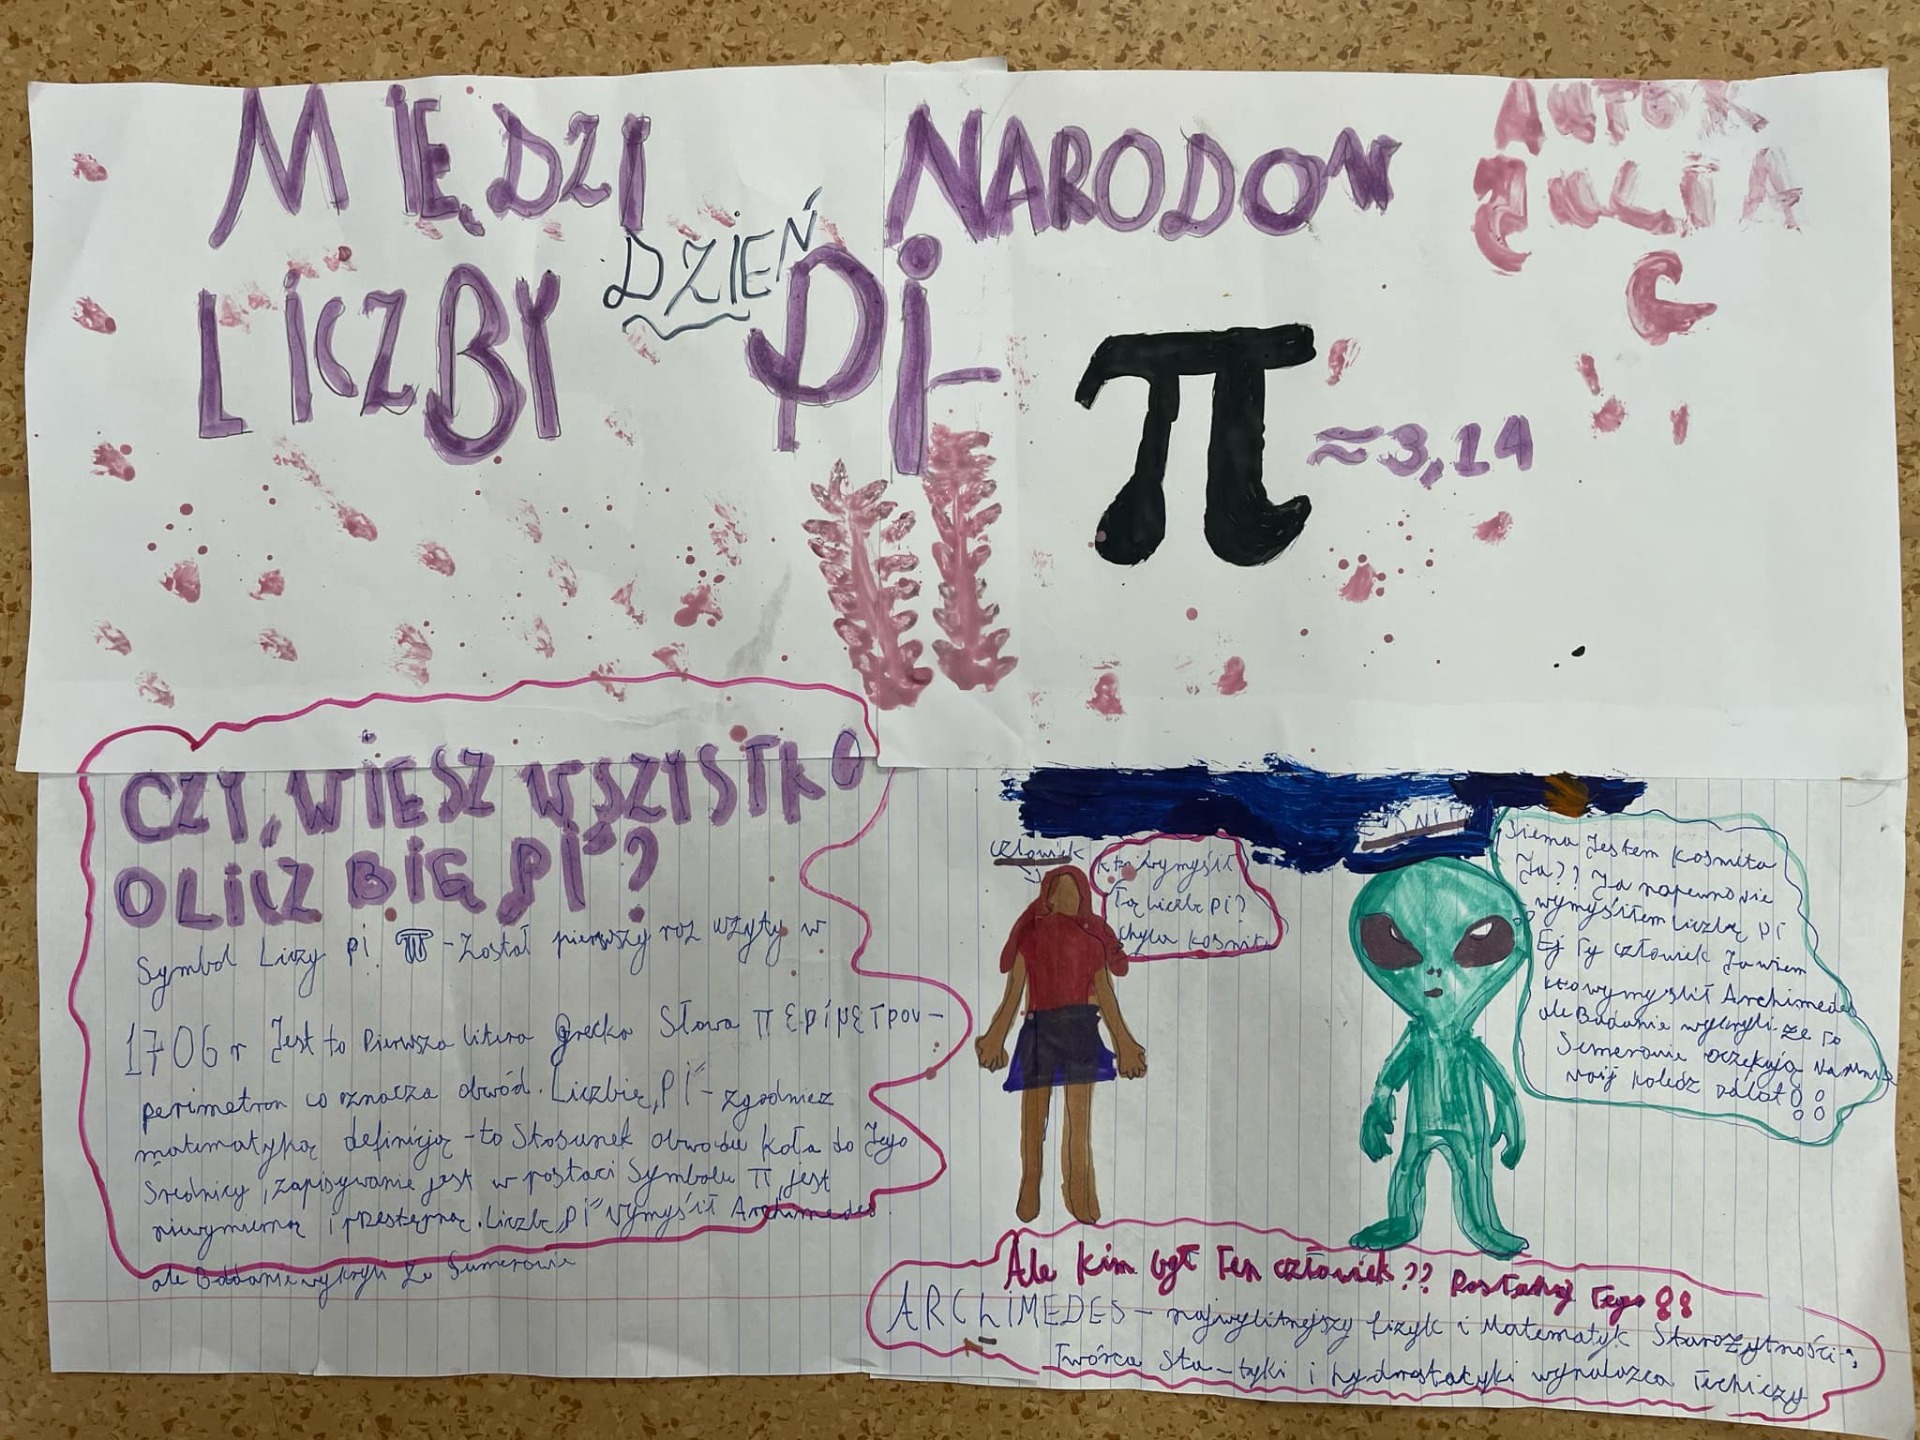 MIĘDZI NARODOW
DZIEŃ
LICZBY PI-
π ≈3,14
AUTOR
ZULIA
C
CZY, WIESZ WSZYSTKO
O LICZBIĘ PI"?
Symbol Liczy pi π - Został pierwszy roz użyty w
1706 r Jest to Pierwsza litera grecka Słowa περίμετρου-
perimetron co oznacza obwód. Liczbię „PI"- zgodniez
matematyką definicją - to Stosunek obwodu koła do Jego
Średnicy, zapisywanie jest w postaci Symbolu π, jest
niewymierną i przestępną. Liczbę „PI" wymyślił Archimedes.
ale Baddanie wykryli że Sumerowie
człowiek
kto wymyślił
Tą liczbę pi?
chyba kosmita
Siema Jestem kosmita
Ja?? Ja napewno nie
wymyśliłem Liczbę pi
Ej Ty człowiek Ja wiem
kto wymyślił Archimedes
ale Badanie wykryli że To
Sumerowie oczekują na mnie
moij koledz
Ale kim był Ten człowiek?? Posłuhaj Tego !!
ARCHIMEDES - najwybitniejszy fizyk i Matematyk Starożytności;
Twórca Sta-tyki i hydrostatyki wynalazca